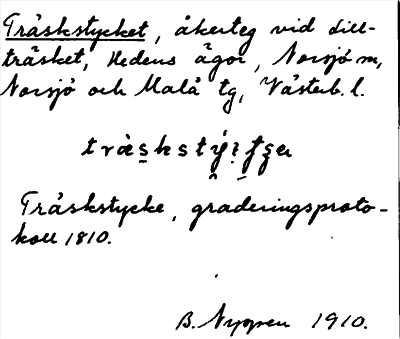 Träskstycket, åkerteg vid Lill-
träsket, Hedens ägor, Norsjö sn,
Norsjö och Malå tg, Västerb. l.
Träskstycke, graderingsproto-
koll 1810.
B. Nyppen 1910.